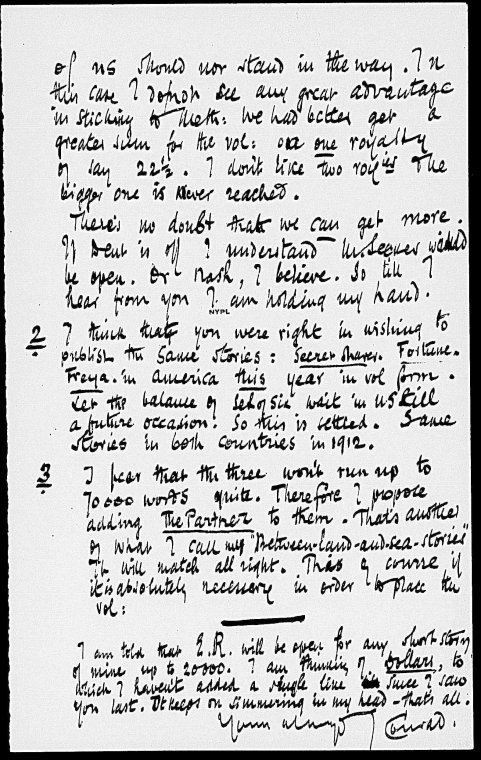 of us should not stand in the way. In
this case I do not see any great advantage
in sticking to Meth: we had better get a
greater sum for the vol: on one royalty
of say 22½. I don't like two roy^ies The
bigger one is never reached.
There's no doubt that we can get more.
If Dent is off I understand M. Secker would
be open. Or Nash, I believe. So till I
hear from you I am holding my hand.
NYPL
2 I think that you were right in wishing to
publish the same stories: Secret Sharer. Fortune.
Freya. in America this year in vol form.
Let the balance of Set of Six wait in US till
a future occasion. So this is settled. Same
stories in both countries in 1912.
3 I fear that the three won't run up to
70000 words quite. Therefore I propose
adding The Partner to them. That's another
of what I call my "Between-land-and-sea-stories"
It will match all right. This of course if
it is absolutely necessary in order to place the
vol:
I am told that E.R. will be open for any short story
of mine up to 20000. I am thinking of Dollars, to
which I haven't added a single line since I saw
you last. It keeps on simmering in my head – that's all.
Yours always J Conrad.